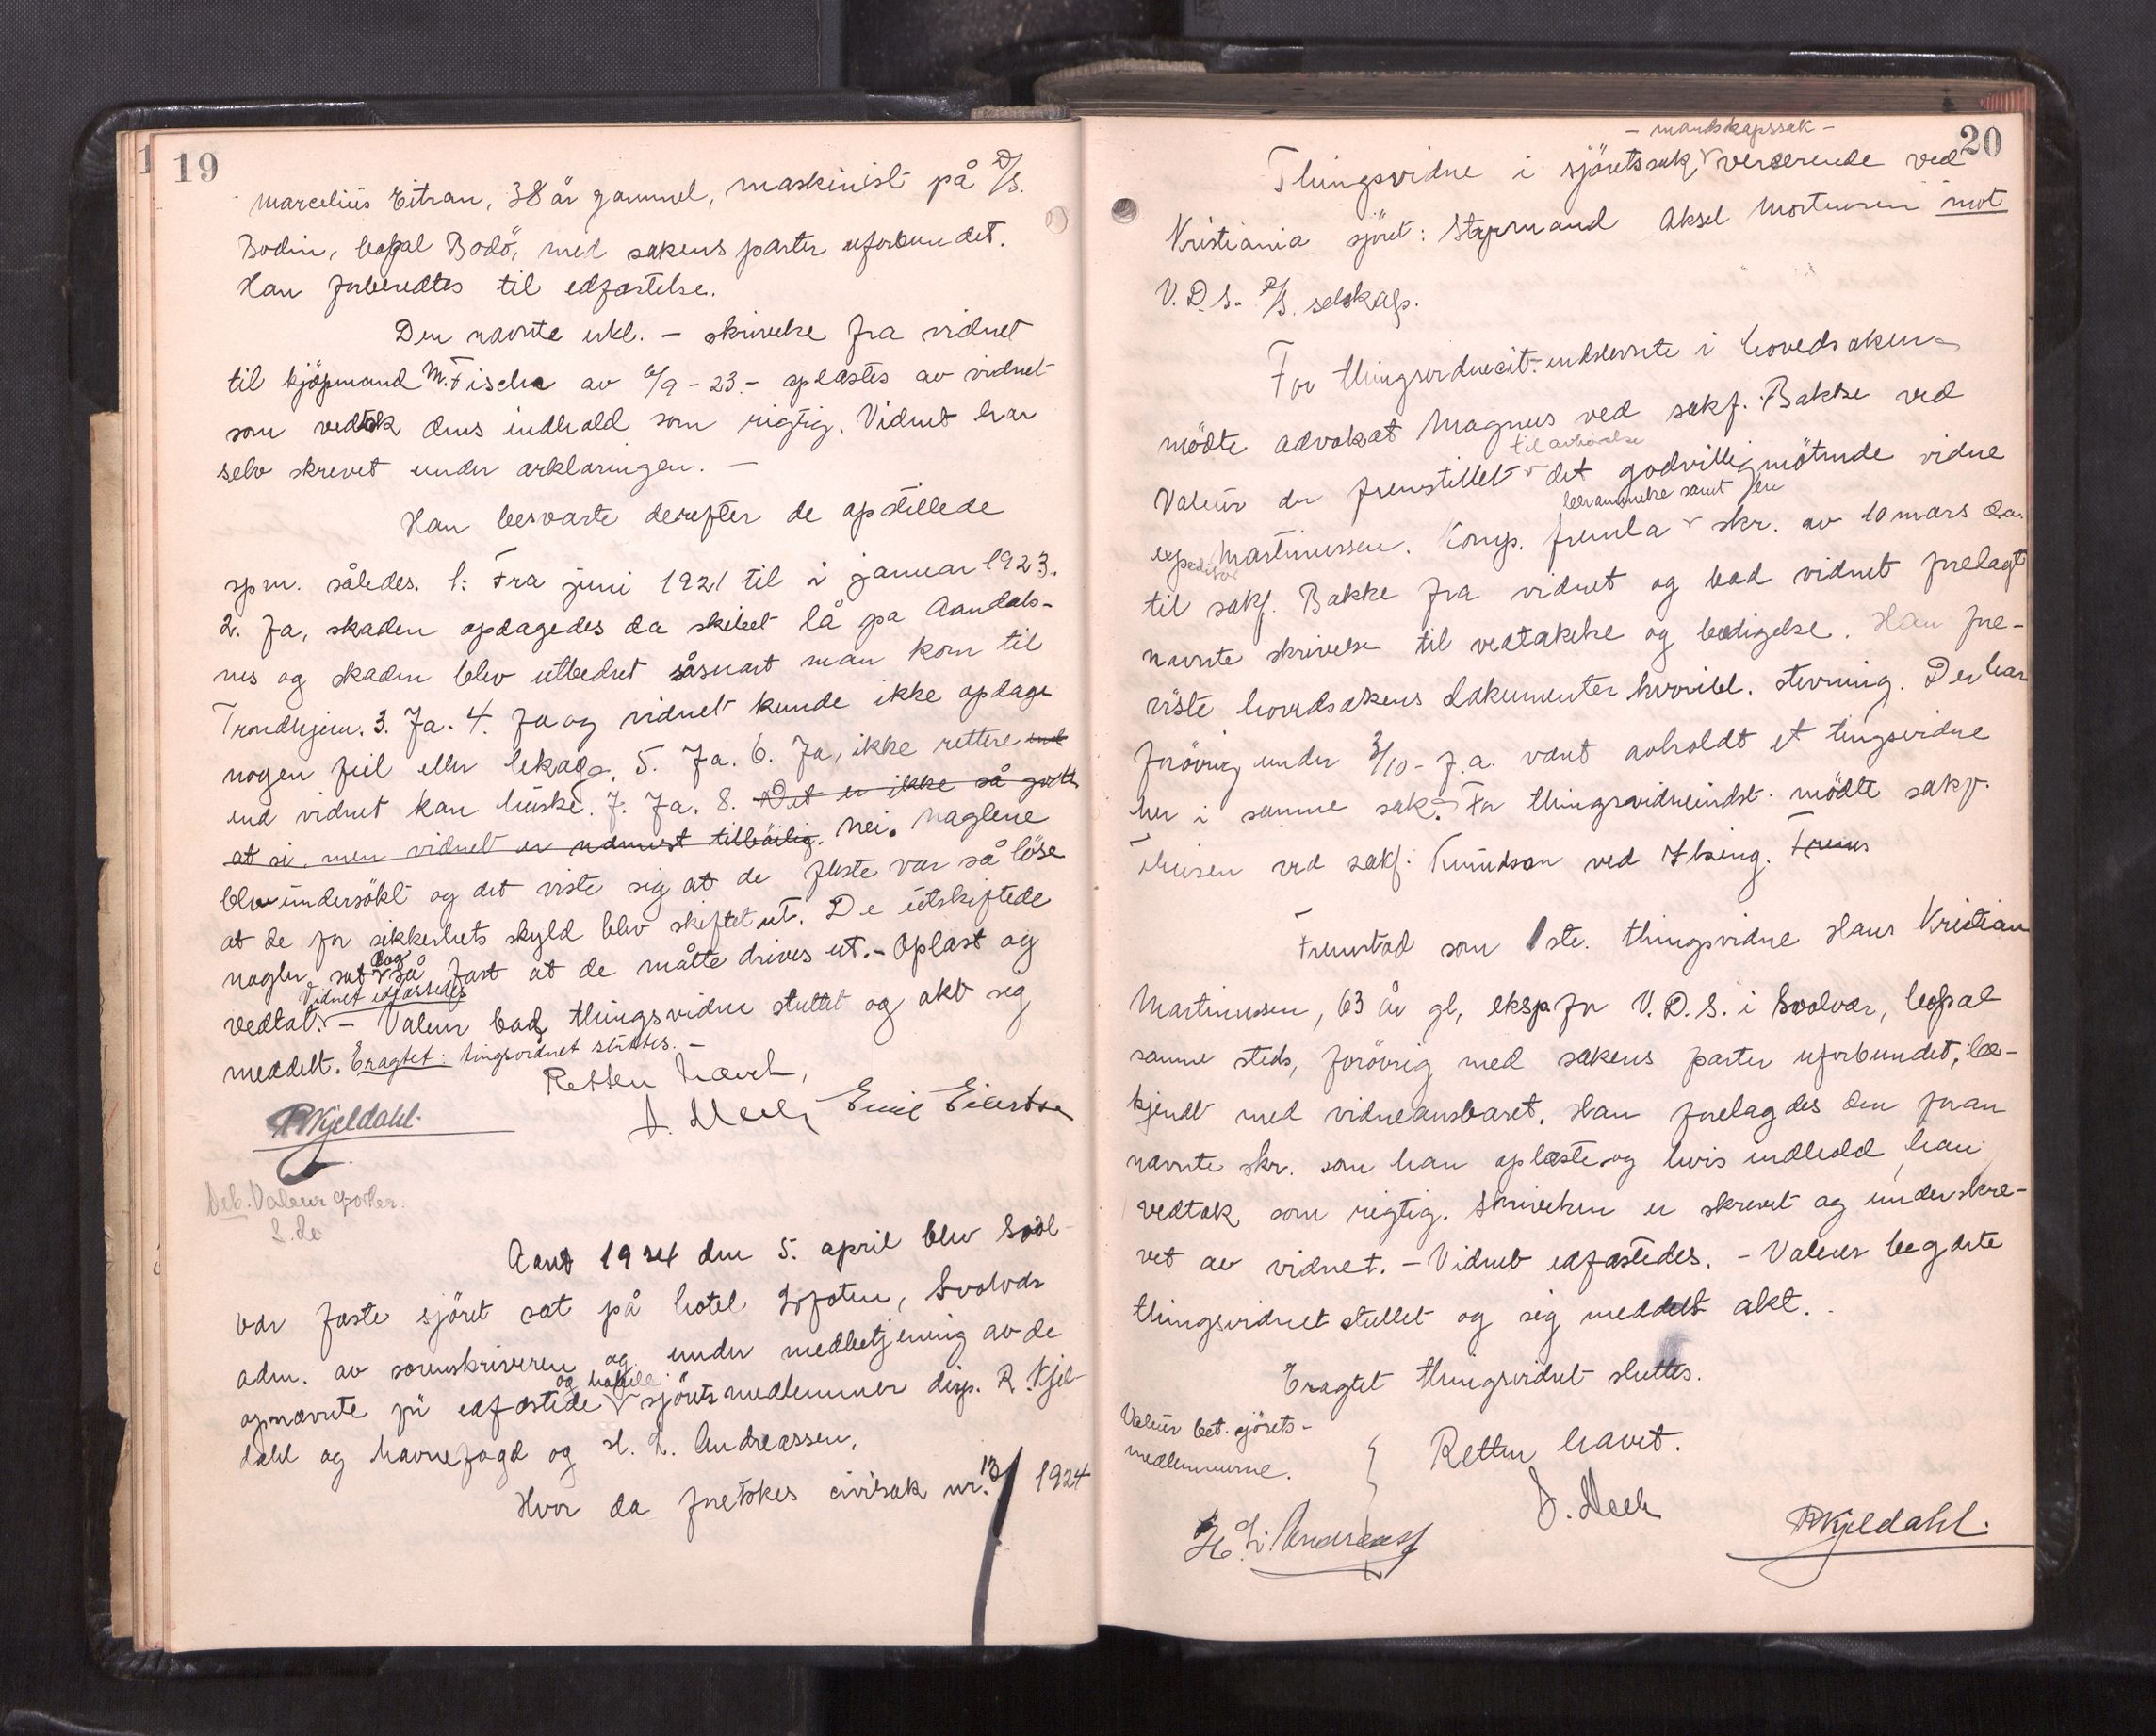 19
Marcelius Eitran, 38 år gammel, maskinist på D/S.
Bodin, bopæl Bodö, med sakens parter uforbundet.
Han forberedtes til edfæstelse.
Den nævnte erkl. – skrivelse fra vidnet
til kjöpmand M. Fischer av 6/9 - 23 - oplæstes av vidnet
som vedtok dens indhold som rigtig. Vidnet har
selv skrevet under erklæringen. –
Han besvarte derefter de opstillede
spm. således. 1: Fra juni 1921 til i januar 1923.
2. Ja, skaden opdagedes da skibet lå på Aandals-
nes og skaden blev utbedret såsnart man kom til
Trondhjem. 3. Ja. 4. Ja og vidnet kunde ikke opdage
nogen feil eller lekage. 5. Ja. 6. Ja, ikke rettere end
end vidnet kan huske. 7. Ja. 8. Det er ikke så godt
at si, men vidnet er nærmest tilböilig. Nei. Naglene
blev undersökt og det viste sig at de fleste var så löse
at de for sikkerhets skyld blev skiftet ut. De utskiftede
nagler sat dog så fast at de måtte drives ut. - Oplæst og
Vidnet edfæstedes
vedtat. - Valeur bad thingsvidne sluttet og akt sig
meddelt. Eragtet: tingsvidnet sluttes. –
Retten hævet,
RKjeldahl. Emil Eilertsen
Deb. Valeur
Aaret 1924 den 5. april blev Svol-
vær faste sjöret sat på hotel Lofoten, Svolvær
adm. av sorenskriveren og under medbetjening av de
opnævnte på edfæstede sjöretsmedlemmer disp. R. Kjel-
dahl og havnefogd og H. L. Andreassen,
Hvor da foretokes civilsak nr. 13/1924
20
- mandskapssak -
Thingsvidne i sjöretssak verserende ved
Kristiania sjöret: Styrmand Aksel Mortensen mot
V.D.S. D/S. selskap.
For thingsvidnecit. indstevnte i hovedsaken
mödte advokat Magnus ved sakf. Bakke ved
til avhörelse
Valeur der fremstillet det godvillig mötende vidne
berammelse samt en
expeditör Martinussen. Komp. fremla skr. av 10 mars d.a.
til sakf. Bakke fra vidnet og bad vidnet forelagt
nævnte skrivelse til vedtakelse og beedigelse. Han fore-
viste hovedsakens dokumenter hvoribl. stevning. Der har
forövrig under 3/10 - f.a. været avholdt et tingsvidne
her i samme sak. For thingsvidneindst. mödte sakf.
ved sakf. Knudson ved
Fremstod som 1ste. thingsvidne Hans Kristian
Martinussen, 63 år gl, eksp. for V.D.S. i Svolvær, bopæl
samme steds, forövrig med sakens parter uforbundet, be-
kjendt med vidneansvaret. Han forelagdes den foran
nævnte skr. som han oplæste og hvis indhold han
vedtok som rigtig. Skrivelsen er skrevet og underskre-
vet av vidnet. - Vidnet edfæstedes. - Valeur begjærte
thingsvidnet sluttet og sig meddelt akt.
Eragtet thingsvidnet sluttes.
Valeur bet. sjörets-
medlemmerne.
Retten hævet.
H. L. Andreassen RKjeldahl.